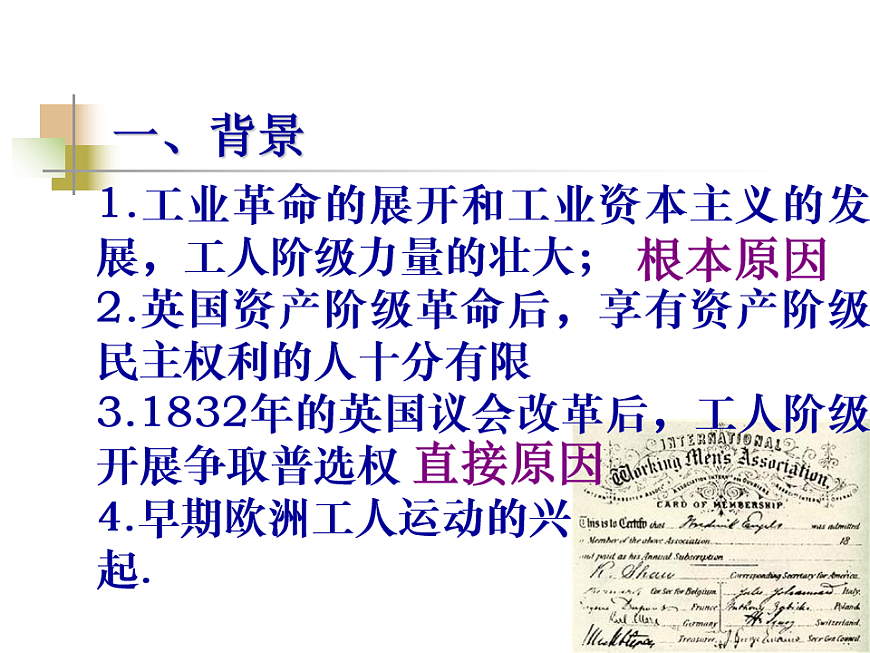 一、背景
1.工业革命的展开和工业资本主义的发
展，工人阶级力量的壮大； 根本原因
2.英国资产阶级革命后，享有资产阶级
民主权利的人十分有限
3.1832年的英国议会改革后，工人阶级
开展争取普选权 直接原因
4.早期欧洲工人运动的兴
起.
INTERNATIONAL
Working Men's Association
CARD OF MEMBERSHIP
This is to Certify that Frederick Engels was admitted
Member of the above Association 18
and paid as his Annual Subscription
R. Shaw Corresponding Secretary for America.
Cor Sec for Belgium. Italy.
Eugene Dupont France Poland
Karl Marx Germany H. Jung Switzerland.
Treasurer. J. George Eccarius Secr Gen Council.